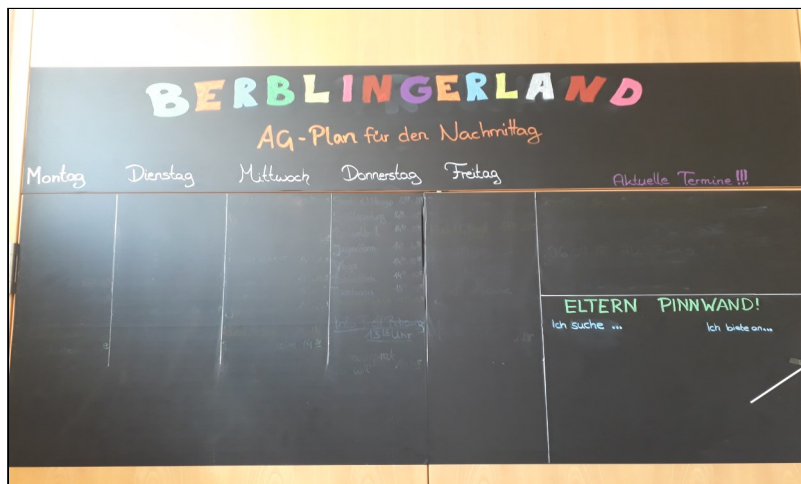 BERBLINGERLAND
AG-Plan für den Nachmittag
Montag Dienstag Mittwoch Donnerstag Freitag
Aktuelle Termine!!!
ELTERN PINNWAND!
Ich suche ...
Ich biete an...